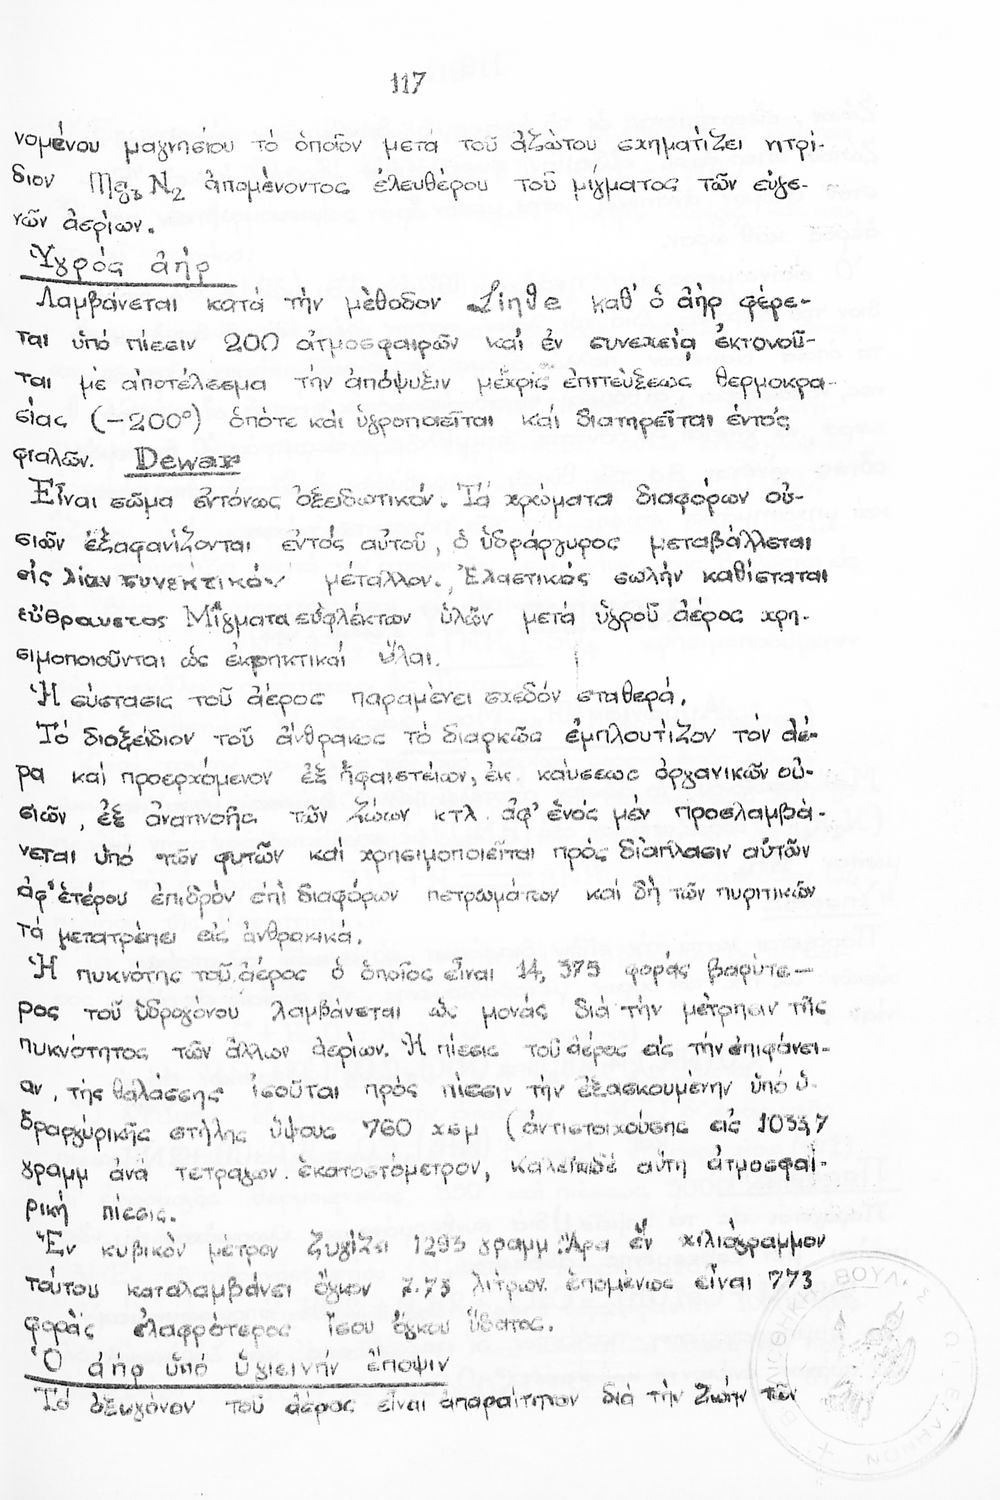 117
νομένου μαγνησίου τό ὁποῖον μετά τοῦ ἀζώτου σχηματίζει νιτρί-
διον Mg3 N2 ἀπομένοντος ἐλευθέρου τοῦ μίγματος τῶν εὐγε-
νῶν ἀερίων.
Ὑγρός ἀήρ
Λαμβάνεται κατά τήν μέθοδον Linde καθ' ὁ ἀήρ φέρε-
ται ὑπό πίεσιν 200 ἀτμοσφαιρῶν καί ἐν συνεχεία ἐκτονοῦ-
ται μέ ἀποτέλεσμα τήν ἀπόψυξιν μέχρις ἐπιτεύξεως θερμοκρα-
σίας (-200°) ὁπότε καί ὑγροποιεῖται καί διατηρεῖται ἐντός
φιαλῶν. Dewar
Εἶναι σῶμα ἐντόνως ὀξειδωτικόν. Τά χρώματα διαφόρων οὐ-
σιῶν ἐξαφανίζονται ἐντός αὐτοῦ, ὁ ὑδράργυρος μεταβάλλεται
εἰς λίαν συνεκτικόν μέταλλον. Ἐλαστικός σωλήν καθίσταται
εὔθραυστος Μίγματα εὐφλέκτων ὑλῶν μετά ὑγροῦ ἀέρος χρη-
σιμοποιοῦνται ὡς ἐκρηκτικαί ὕλαι.
Ἡ σύστασις τοῦ ἀέρος παραμένει σχεδόν σταθερά.
Τό διοξείδιον τοῦ ἄνθρακος τό διαρκῶς ἐμπλουτίζον τόν ἀέ-
ρα καί προερχόμενον ἐξ ἡφαιστείων, ἐκ καύσεως ὀργανικῶν οὐ-
σιῶν, ἐξ ἀναπνοῆς τῶν ζώων κτλ. ἀφ' ἑνός μέν προσλαμβά-
νεται ὑπό τῶν φυτῶν καί χρησιμοποιεῖται πρός διάπλασιν αὐτῶν
ἀφ' ἑτέρου ἐπιδρόν ἐπί διαφόρων πετρωμάτων καί δή τῶν πυριτικῶν
τά μετατρέπει εἰς ἀνθρακικά.
Ἡ πυκνότης τοῦ ἀέρος ὁ ὁποῖος εἶναι 14,375 φοράς βαρύτε-
ρος τοῦ ὑδρογόνου λαμβάνεται ὡς μονάς διά τήν μέτρησιν τῆς
πυκνότητος τῶν ἄλλων ἀερίων. Ἡ πίεσις τοῦ ἀέρος εἰς τήν ἐπιφάνει-
αν, τῆς θαλάσσης ἰσοῦται πρός πίεσιν τήν ἐξασκουμένην ὑπό ὑ-
δραργυρικῆς στήλης ὕψους 760 χσμ (ἀντιστοιχούσης εἰς 1033,7
γραμμ ἀνά τετραγων. ἑκατοστόμετρον, καλεῖται δέ αὕτη ἀτμοσφαι-
ρική πίεσις.
Ἕν κυβικόν μέτρον ζυγίζει 1293 γραμμ. Ἄρα ἕν χιλιόγραμμον
τούτου καταλαμβάνει ὄγκον 7.73 λίτρων. ἑπομένως εἶναι 773
φοράς ἐλαφρότερος ἴσου ὄγκου ὕδατος.
Ὁ ἀήρ ὑπό ὑγιεινήν ἔποψιν
Τό ὀξυγόνον τοῦ ἀέρος εἶναι ἀπαραίτητον διά τήν ζωήν τῶν